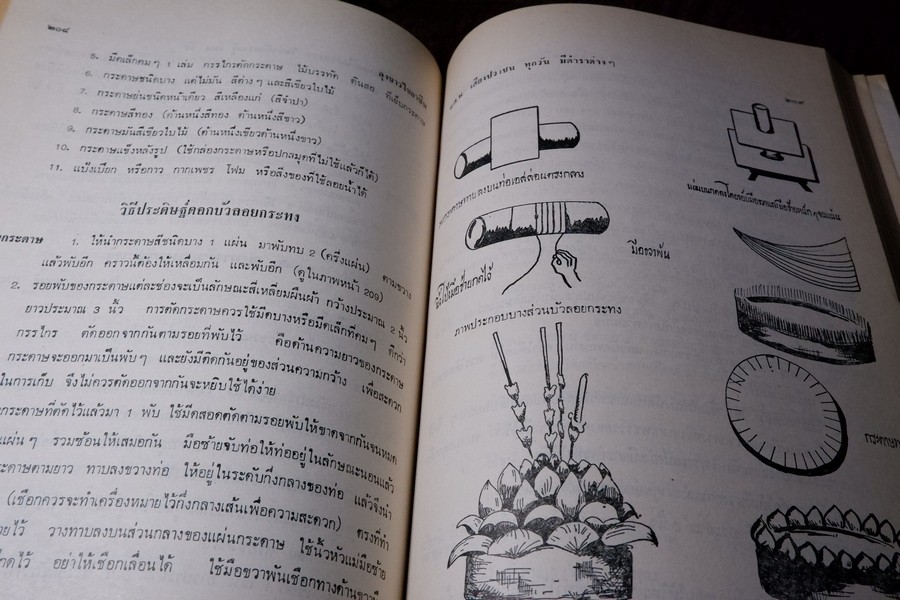 ๒๐๘
5. มีดเล็กคมๆ 1 เล่ม กรรไกรตัดกระดาษ ไม้บรรทัด ดินสอ ที่เย็บกระดาษ
6. กระดาษชนิดบาง แต่ไม่มัน สีต่างๆ และสีเขียวใบไม้
7. กระดาษย่นชนิดหน้าเดียว สีเหลืองแก่ (สีจำปา)
8. กระดาษสีทอง (ด้านหนึ่งสีทอง ด้านหนึ่งสีขาว)
9. กระดาษมันสีเขียวใบไม้ (ด้านหนึ่งเขียวด้านหนึ่งขาว)
10. กระดาษแข็งหลังรูป (ใช้กล่องกระดาษหรือปกสมุดที่ไม่ใช้แล้วก็ได้)
11. แป้งเปียก หรือกาว กากเพชร โฟม หรือสิ่งของที่ใช้ลอยน้ำได้
วิธีประดิษฐ์ดอกบัวลอยกระทง
กระดาษ 1. ให้นำกระดาษสีชนิดบาง 1 แผ่น มาพับทบ 2 (ครึ่งแผ่น) ตามขวาง
แล้วพับอีก คราวนี้ต้องให้เหลื่อมกัน และพับอีก (ดูในภาพหน้า 209)
2. รอยพับของกระดาษแต่ละช่องจะเป็นลักษณะสี่เหลี่ยมผืนผ้า กว้างประมาณ 2 นิ้ว
ยาวประมาณ 3 นิ้ว การตัดกระดาษควรใช้มีดบางหรือมีดเล็กที่คมๆ ดีกว่า
กรรไกร ตัดออกจากกันตามรอยที่พับไว้ คือด้านความยาวของกระดาษ
กระดาษจะออกมาเป็นพับๆ และยังมีติดกันอยู่ของส่วนความกว้าง เพื่อสะดวก
ในการเก็บ จึงไม่ควรตัดออกจากกันจะหยิบใช้ได้ง่าย
กระดาษที่ตัดไว้แล้วมา 1 พับ ใช้มีดสอดตัดตามรอยพับให้ขาดจากกันจนหมด
แผ่นๆ รวมซ้อนให้เสมอกัน มือซ้ายจับท่อให้ท่ออยู่ในลักษณะนอนแล้ว
ระดาษตามยาว ทาบลงขวางท่อ ให้อยู่ในระดับกึ่งกลางของท่อ แล้วจึงนำ
(เชือกควรจะทำเครื่องหมายไว้กึ่งกลางเส้นเพื่อความสะดวก) ตรงที่ทำ
ายไว้ วางทาบลงบนส่วนกลางของแผ่นกระดาษ ใช้นิ้วหัวแม่มือซ้าย
กดไว้ อย่าให้เชือกเลื่อนได้ ใช้มือขวาพันเชือกทางด้านขวามื
๒๐๙
ทุกวัน มีตำราต่างๆ
กระดาษทาบลงบนท่อเอสล่อนตรงกลาง
มือขวาพัน
นิ้วโป้งมือซ้ายกดไว้
ภาพประกอบบางส่วนบัวลอยกระทง